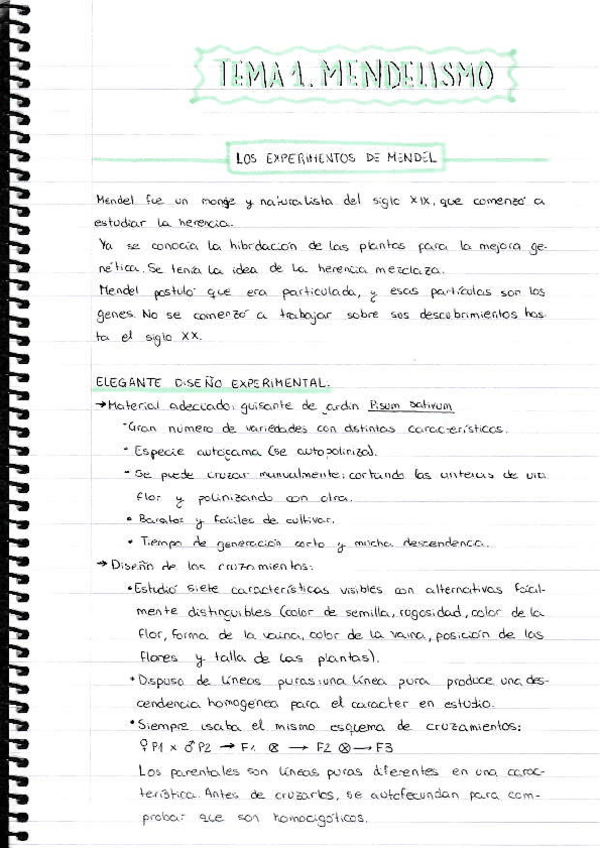 TEMA 1. MENDELISMO
LOS EXPERIMENTOS DE MENDEL
Mendel fue un monge y naturalista del siglo XIX, que comenzó a
estudiar la herencia.
Ya se conocía la hibrdación de las plantas para la mejora ge-
nética. Se tenía la idea de la herencia mezclaza.
Mendel postuló que era particulada, y esas partículas son los
genes. No se comenzó a trabajar sobre sus descubrimientos has
ta el siglo XX.
ELEGANTE DISEÑO EXPERIMENTAL:
→ Material adecuado: guisante de jardín Pisum sativum
· Gran número de variedades con distintas características.
· Especie autógama (se autopoliniza).
· Se puede cruzar manualmente: cortando las anteras de una
flor y polinizando con otra.
· Baratos y fáciles de cultivar.
· Tiempo de generación corto y mucha descendencia.
→ Diseño de los cruzamientos:
· Estudió siete características visibles con alternativas fácil-
mente distinguibles (color de semilla, rugosidad, color de la
flor, forma de la vaina, color de la vaina, posición de las
flores y talla de las plantas).
· Dispuso de líneas puras: una línea pura produce una des-
cendencia homogénea para el caracter en estudio.
· Siempre usaba el mismo esquema de cruzamientos:
♀ P1 × ♂ P2 → F1 ⊗ → F2 ⊗ → F3
Los parentales son líneas puras diferentes en una carac-
terística. Antes de cruzarlos, se autofecundan para com-
probar que son homocigóticos.